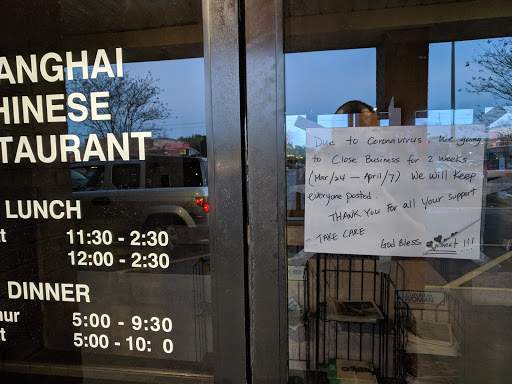 ANGHAI
HINESE
TAURANT
LUNCH
11:30 - 2:30
12:00 - 2:30
DINNER
5:00 - 9:30
5:00 - 10: 0
Due to Coronavirus, we going
to Close Business for 2 weeks
(Mar/24 — April/7) We will keep
everyone posted.
THANK YOU For all your support
TAKE CARE
God Bless
WOMAN